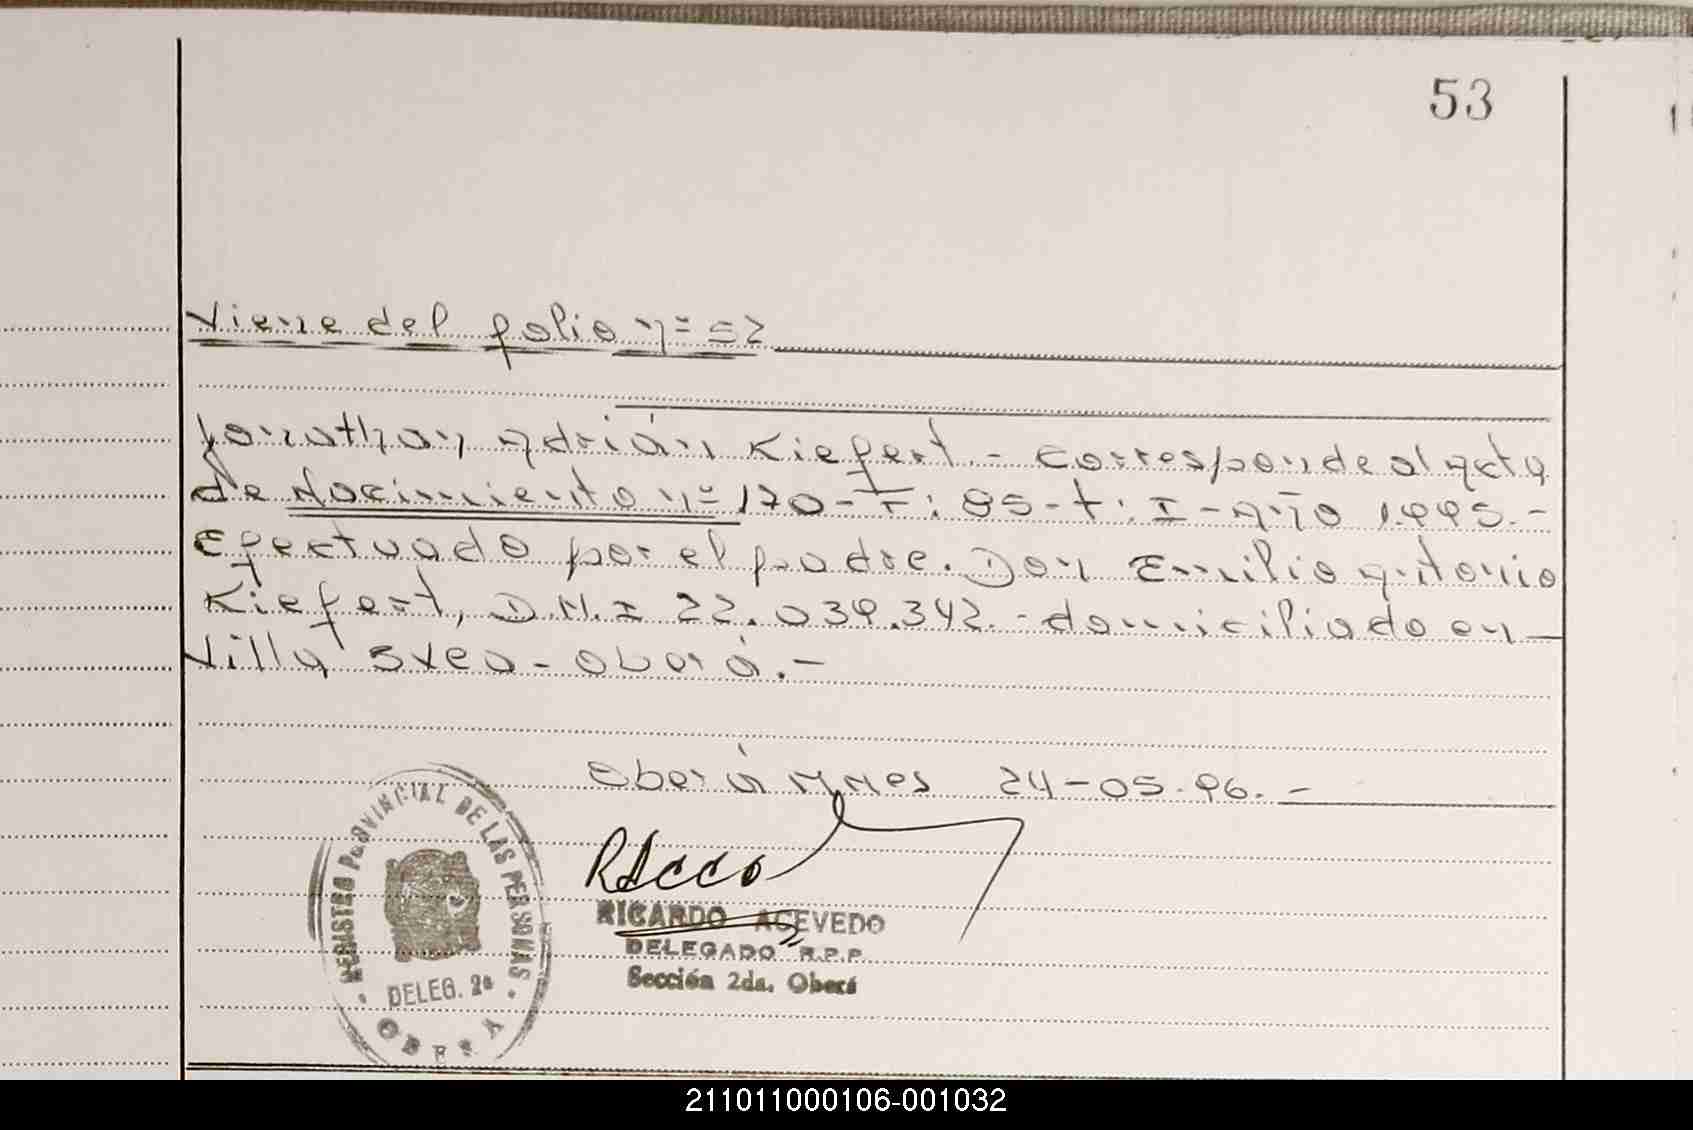 53
Viene del folio nº 52
Jonathan Adrián Kiefert.- Corresponde al Acta
de Nacimiento nº 170-F: 85-t: I-Año 1.995.-
Efectuado por el padre. Don Emilio Antonio
Kiefert, D.N.I 22.039.342.- domiciliado en
Villa Svea - Oberá.-
Oberá Mnes 24-05-96.-
REGISTRO PROVINCIAL DE LAS PERSONAS
DELEG. 2ª
OBERA
RICARDO ACEVEDO
DELEGADO R.P.P.
Sección 2da. Oberá
211011000106-001032